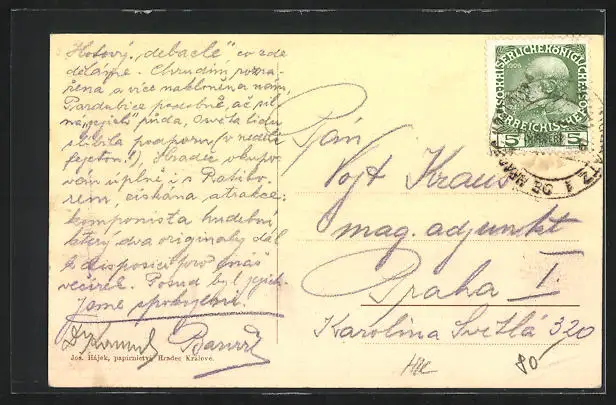 Hotový „debacle" co zde
děláme. Chrudim pora-
žena a více nakloněna nám,
Pardubice podobně, ač sil
na „jejich" půda, Osvěta lidu
slíbila podporu (v neděli
fejeton!), Hradec okupo-
ván úplně i s Ratibo-
rem, získána atrakce:
komponista hudební
který dva originály dal
k disposici pro náš
večírek. Posud byl jejich.
Jsme spokojeni.
Dr
Jos. Hájek, papírnictví Hradec Králové.
KAIS. KÖNIGLICHE
1908
5 5
Pán
Vojt Kraus
mag. adjunkt
Praha I.
Karolina Světlá 320
80